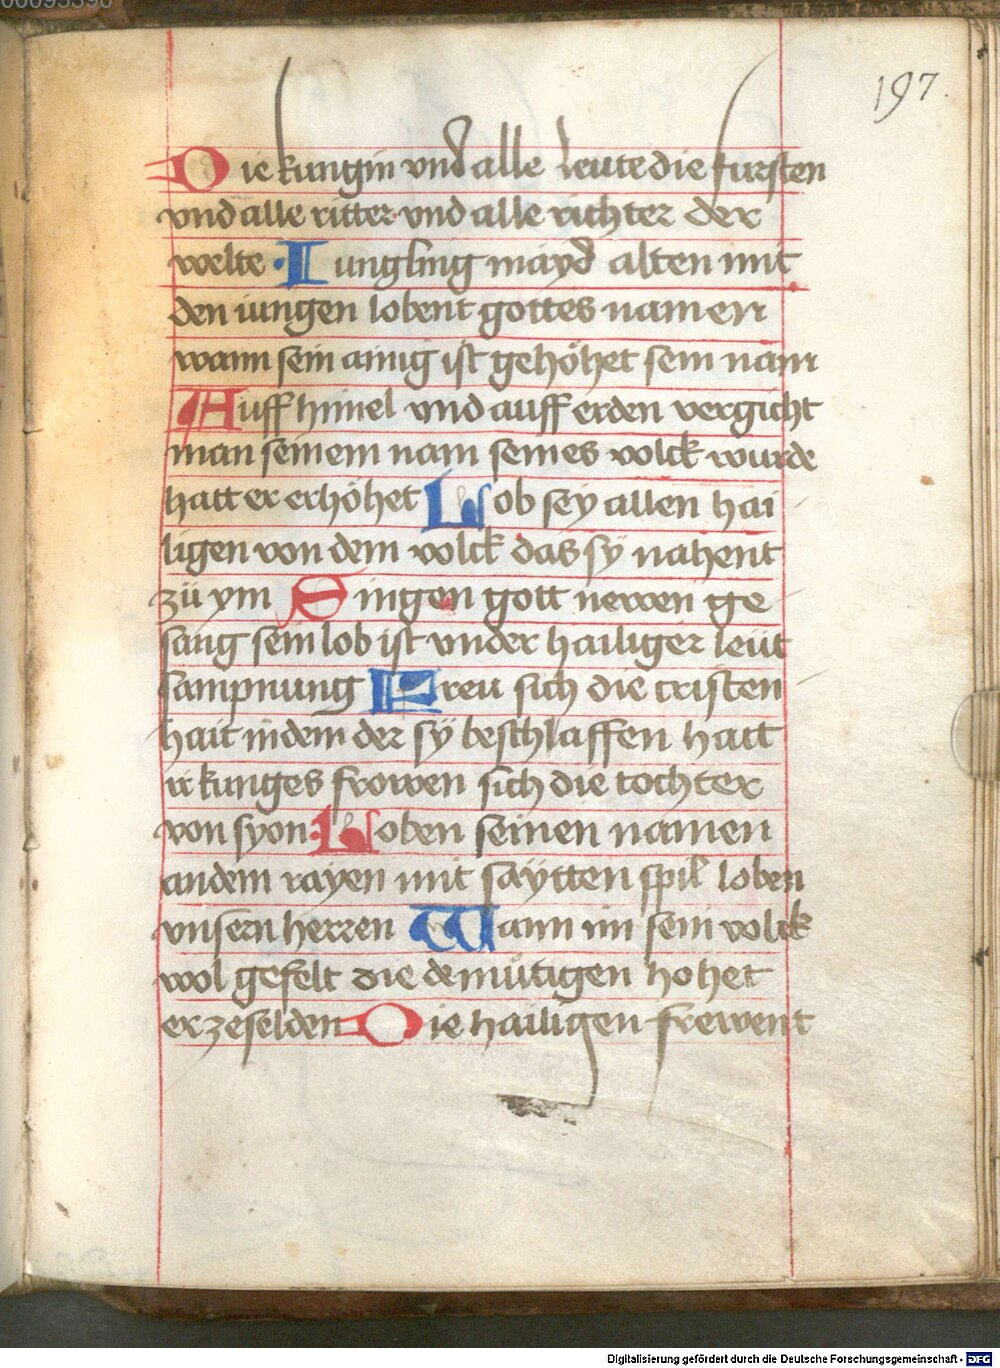 00095390
197.
Die kungin vnd alle leute die fursten
vnd alle ritter vnd alle richter der
welte · Iungling mayd alten mit
den iungen lobent gottes namen
wann sein ainig ist gehöhet sein nam
Auff himel vnd auff erden vergicht
man seinem nam seines volck wurde
hatt er erhöhet Lob sey allen hai
ligen von dem volck das sÿ nahent
zü ym Singen gott newen ge
sang sein lob ist vnder hailiger leüt
sampnung Freu sich die cristen
hait in dem der sÿ beschlaffen hatt
ir kunges frowen sich die tochter
von syon: Loben seinen namen
an dem rayen mit saÿtten spil loben
vnsern herren Wann im sein volck
wol gefelt die demütigen hohet
er ze selden Die hailigen frewent
Digitalisierung gefördert durch die Deutsche Forschungsgemeinschaft - DFG